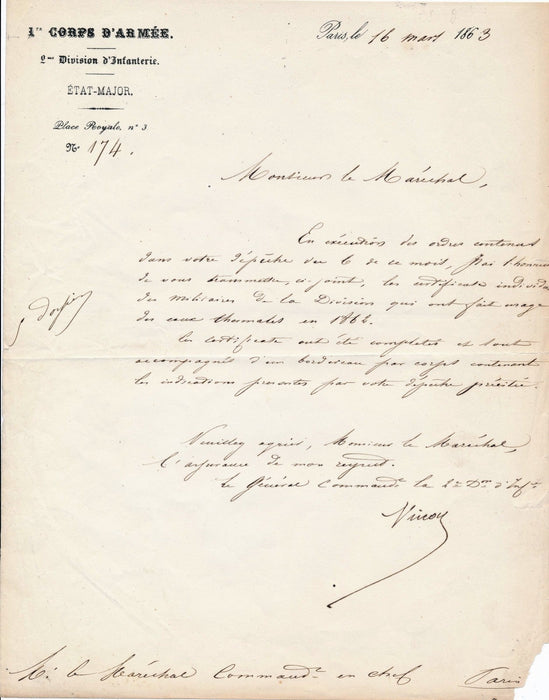 1er CORPS D'ARMÉE.
2me Division d'Infanterie.
ÉTAT-MAJOR.
Place Royale, n° 3
N° 174.
Paris, le 16 mars 1863
Monsieur le Maréchal,
En exécution des ordres contenus
dans votre dépêche du 6 de ce mois, j'ai l'honneur
de vous transmettre, ci joint, les certificats individuels
des militaires de la Division qui ont fait usage
des eaux thermales en 1862.
Ces certificats ont été complétés et sont
accompagnés d'un bordereau par corps contenant
les indications prescrites par votre dépêche précitée.
Veuillez agréer, Monsieur le Maréchal,
l'assurance de mon respect.
Le Général Commandt la 2e Don d'Infie
Vinoy
M. le Maréchal Commandt en chef Paris